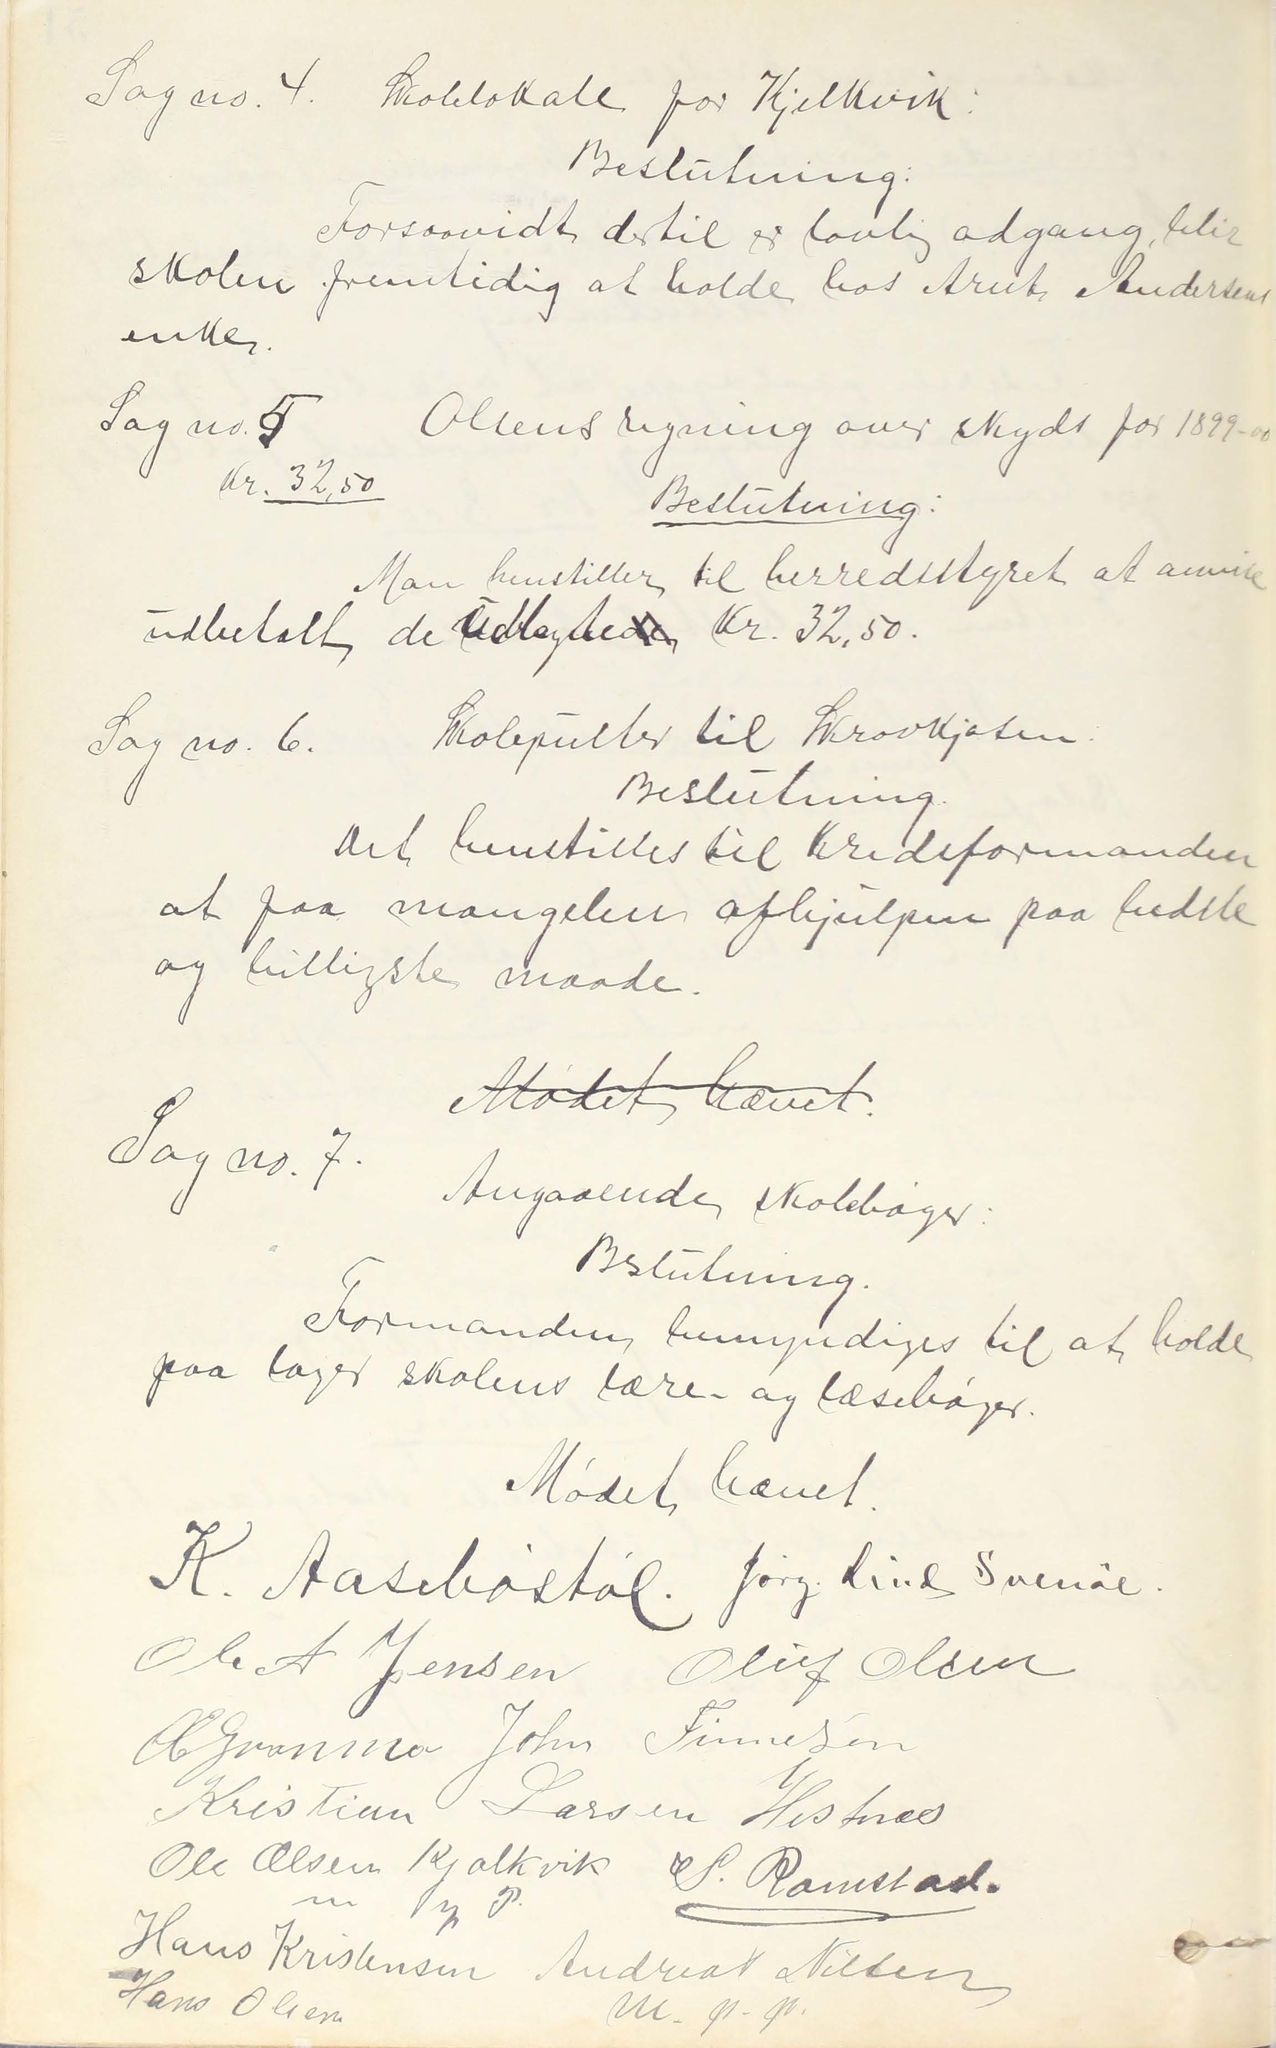 Sag no. 4. Skolelokale for Kjelkvik:
Beslutning:
Forsaavidt dertil er lovlig adgang, blir
skolen fremtidig at holde hos Arnt Andersens
enke.
Sag no. 5 Olsens regning over skyds for 1899-00
Kr. 32,50
Beslutning:
Man henstiller til herredsstyret at anvise
udbetalt de udlagte Kr. 32,50.
Sag no. 6. Skolepulter til Skrovkjosen:
Beslutning.
Det henstilles til kredsformanden
at faa mangelen afhjulpen paa bedste
og billigste maade.
Mødet hævet.
Sag no. 7.
Angaaende skolebøger:
Beslutning.
Formanden bemyndiges til at holde
paa lager skolens lære- og læsebøger.
Mødet hævet.
K. Aasebøstøl. Jørg. Lind Svenøe.
Ole A Jensen Oluf Olsen
John Finnesen
Kristian Larsen Hestnæs
Ole Olsen Kjælkvik S. Ramstad.
m p P.
Hans Kristensen Andreas Nilsen
Hans Olsen m. p. p.